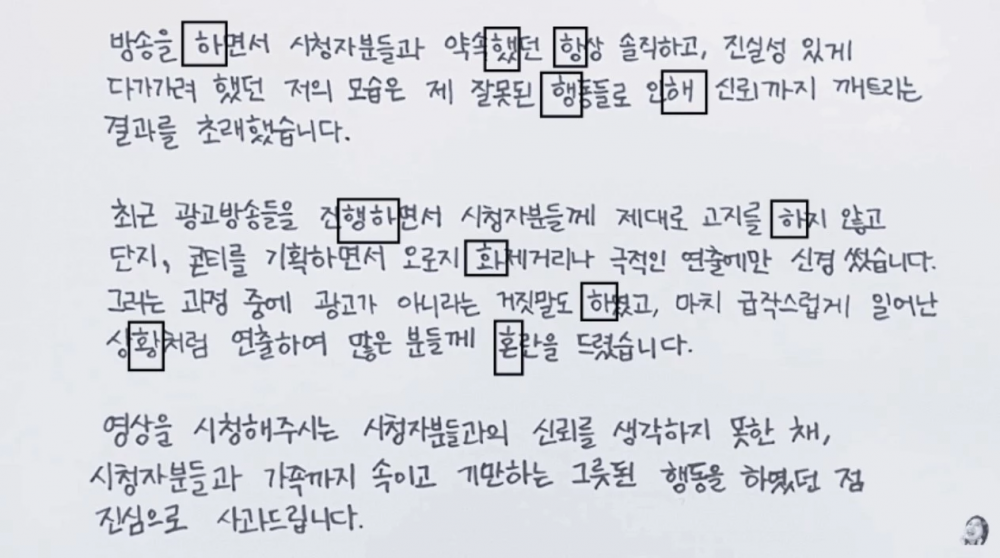 방송을 하면서 시청자분들과 약속했던 항상 솔직하고, 진실성 있게
다가가려 했던 저의 모습은 제 잘못된 행동들로 인해 신뢰까지 깨트리는
결과를 초래했습니다.
최근 광고방송들을 진행하면서 시청자분들께 제대로 고지를 하지 않고
단지, 콘티를 기획하면서 오로지 화제거리나 극적인 연출에만 신경 썼습니다.
그러는 과정 중에 광고가 아니라는 거짓말도 하였고, 마치 급작스럽게 일어난
상황처럼 연출하여 많은 분들께 혼란을 드렸습니다.
영상을 시청해주시는 시청자분들과의 신뢰를 생각하지 못한 채,
시청자분들과 가족까지 속이고 기만하는 그릇된 행동을 하였던 점
진심으로 사과드립니다.